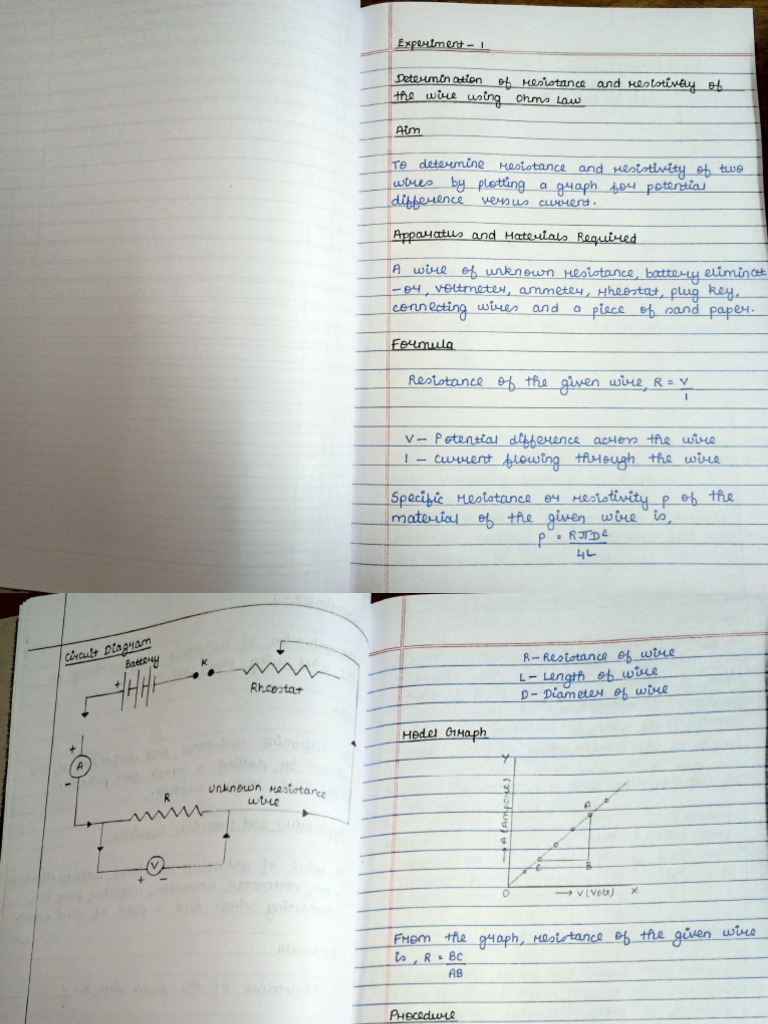 Experiment - 1
Determination of resistance and resistivity of
the wire using Ohms Law
Aim
To determine resistance and resistivity of two
wires by plotting a graph for potential
difference versus current.
Apparatus and Materials Required
A wire of unknown resistance, battery eliminat
-or, voltmeter, ammeter, rheostat, plug key,
connecting wires and a piece of sand paper.
Formula
Resistance of the given wire, R = V
I
V - Potential difference across the wire
I - current flowing through the wire
Specific resistance or resistivity ρ of the
material of the given wire is,
ρ = RπD²
4L
Circuit Diagram
Battery
+
K
Rheostat
+
A
-
R
unknown resistance
wire
V
+ -
R - Resistance of wire
L - Length of wire
D - Diameter of wire
Model Graph
Y
→ A (Ampere)
A
C
B
O
→ V (Volt)
X
From the graph, resistance of the given wire
is, R = BC
AB
Procedure